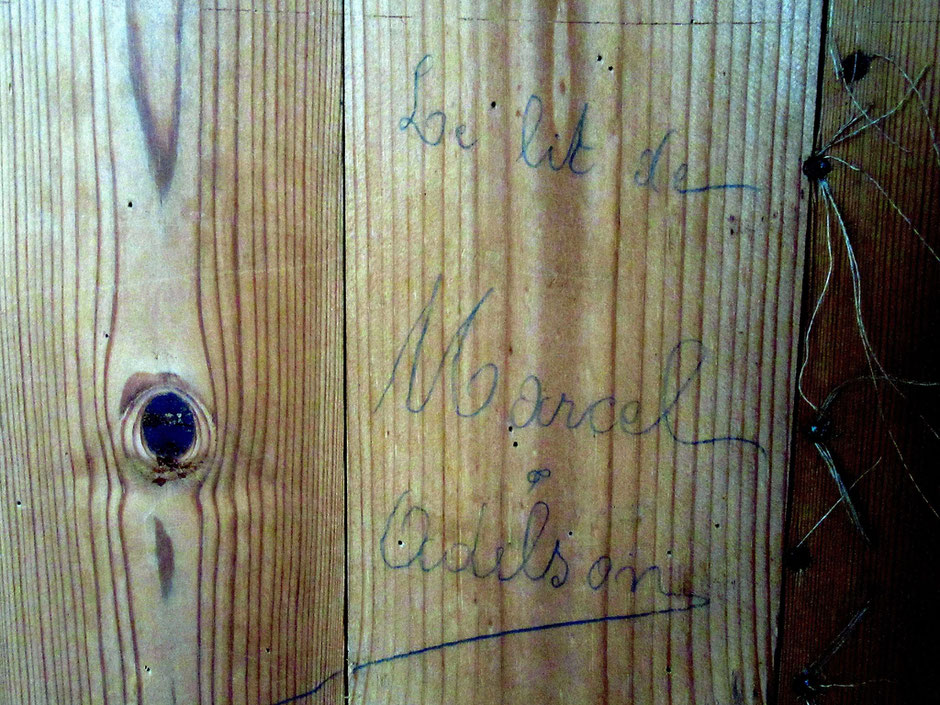 Le lit de
Marcel
Adilson